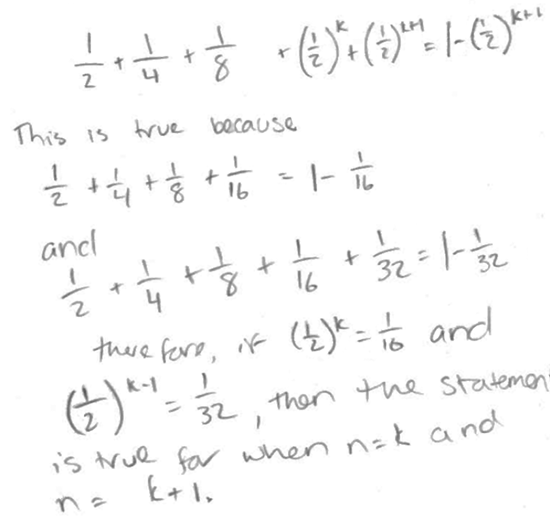 1/2 + 1/4 + 1/8 + (1/2)^k + (1/2)^(k+1) = 1 - (1/2)^(k+1)
This is true because
1/2 + 1/4 + 1/8 + 1/16 = 1 - 1/16
and
1/2 + 1/4 + 1/8 + 1/16 + 1/32 = 1 - 1/32
therefore, if (1/2)^k = 1/16 and
(1/2)^(k-1) = 1/32, then the statemen
is true for when n=k and
n = k+1.